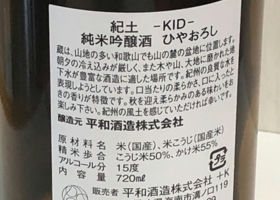 紀土 -KID-
純米吟醸酒 ひやおろし
蔵は、山地の多い和歌山でも山の麓の盆地に位置します。
朝夕の冷え込みが厳しく、また
下水が豊富な酒造に適した場所です。紀州の良質な水を
表現しようとしています。口当たりの
きの香りが特徴です。秋を迎え柔らかみのある味わいと
す。紀州の風土を感じていただければ幸いです。
醸造元 平和酒造株式会社
原材料名 米(国産)、米こうじ(国産米)
精米歩合 こうじ米50%、かけ米55%
アルコール分 15度
内容量 720ml
販売者 平和酒造株式会社 +K
海南市溝ノ口119